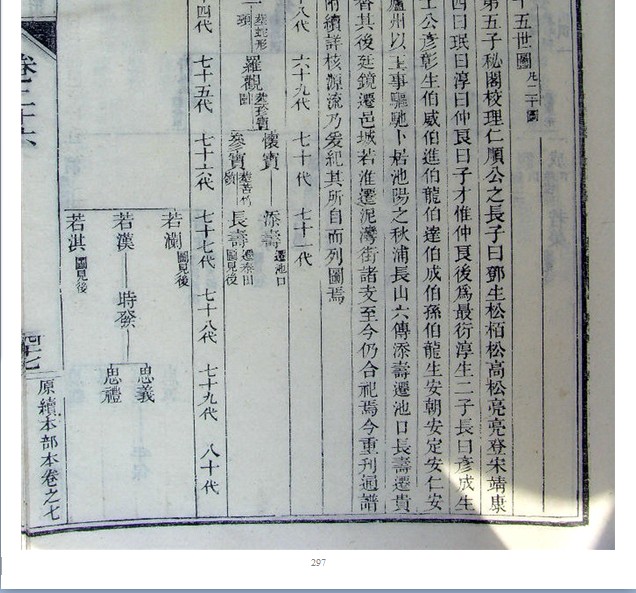 十五世圖 凡二十圖
第五子秘閣校理仁順公之長子曰鄧生松栢松高松亮亮登宋靖康
四曰珉曰淳曰仲良曰子才惟仲良後爲最衍淳生二子長曰彦成生
上公彦彰生伯威伯進伯龍伯達伯成伯孫伯龍生安朝安定安仁安
廬州以王事驅馳卜居池陽之秋浦長山六傳添壽遷池口長壽遷貴
耆其後延鏡遷邑城若淮遷泥灣街諸支至今仍合祀焉今重刊通譜
附續詳核源流乃爰紀其所自而列圖焉
六十九代 七十代 七十一代
懷寶 添壽 遷池口
羅觀 葬
參寶 長壽 遷泰田 圖見後
四代 七十五代 七十六代 七十七代 七十八代 七十九代 八十代
若瀾 圖見後
若漢 時發 思義
思禮
若淇 圖見後
卷二十六
原續本部本卷之七
297